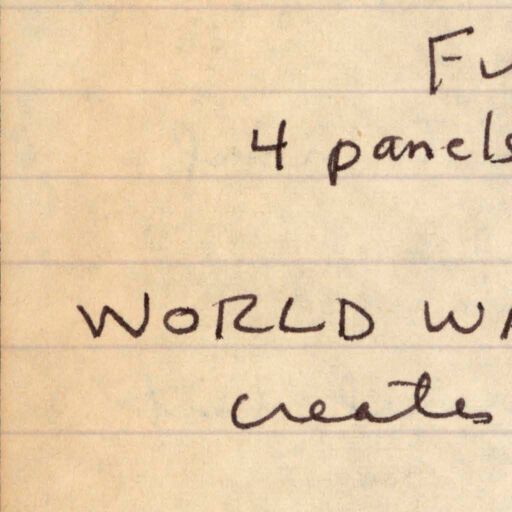 Fu
4 panels
WORLD WA
creates